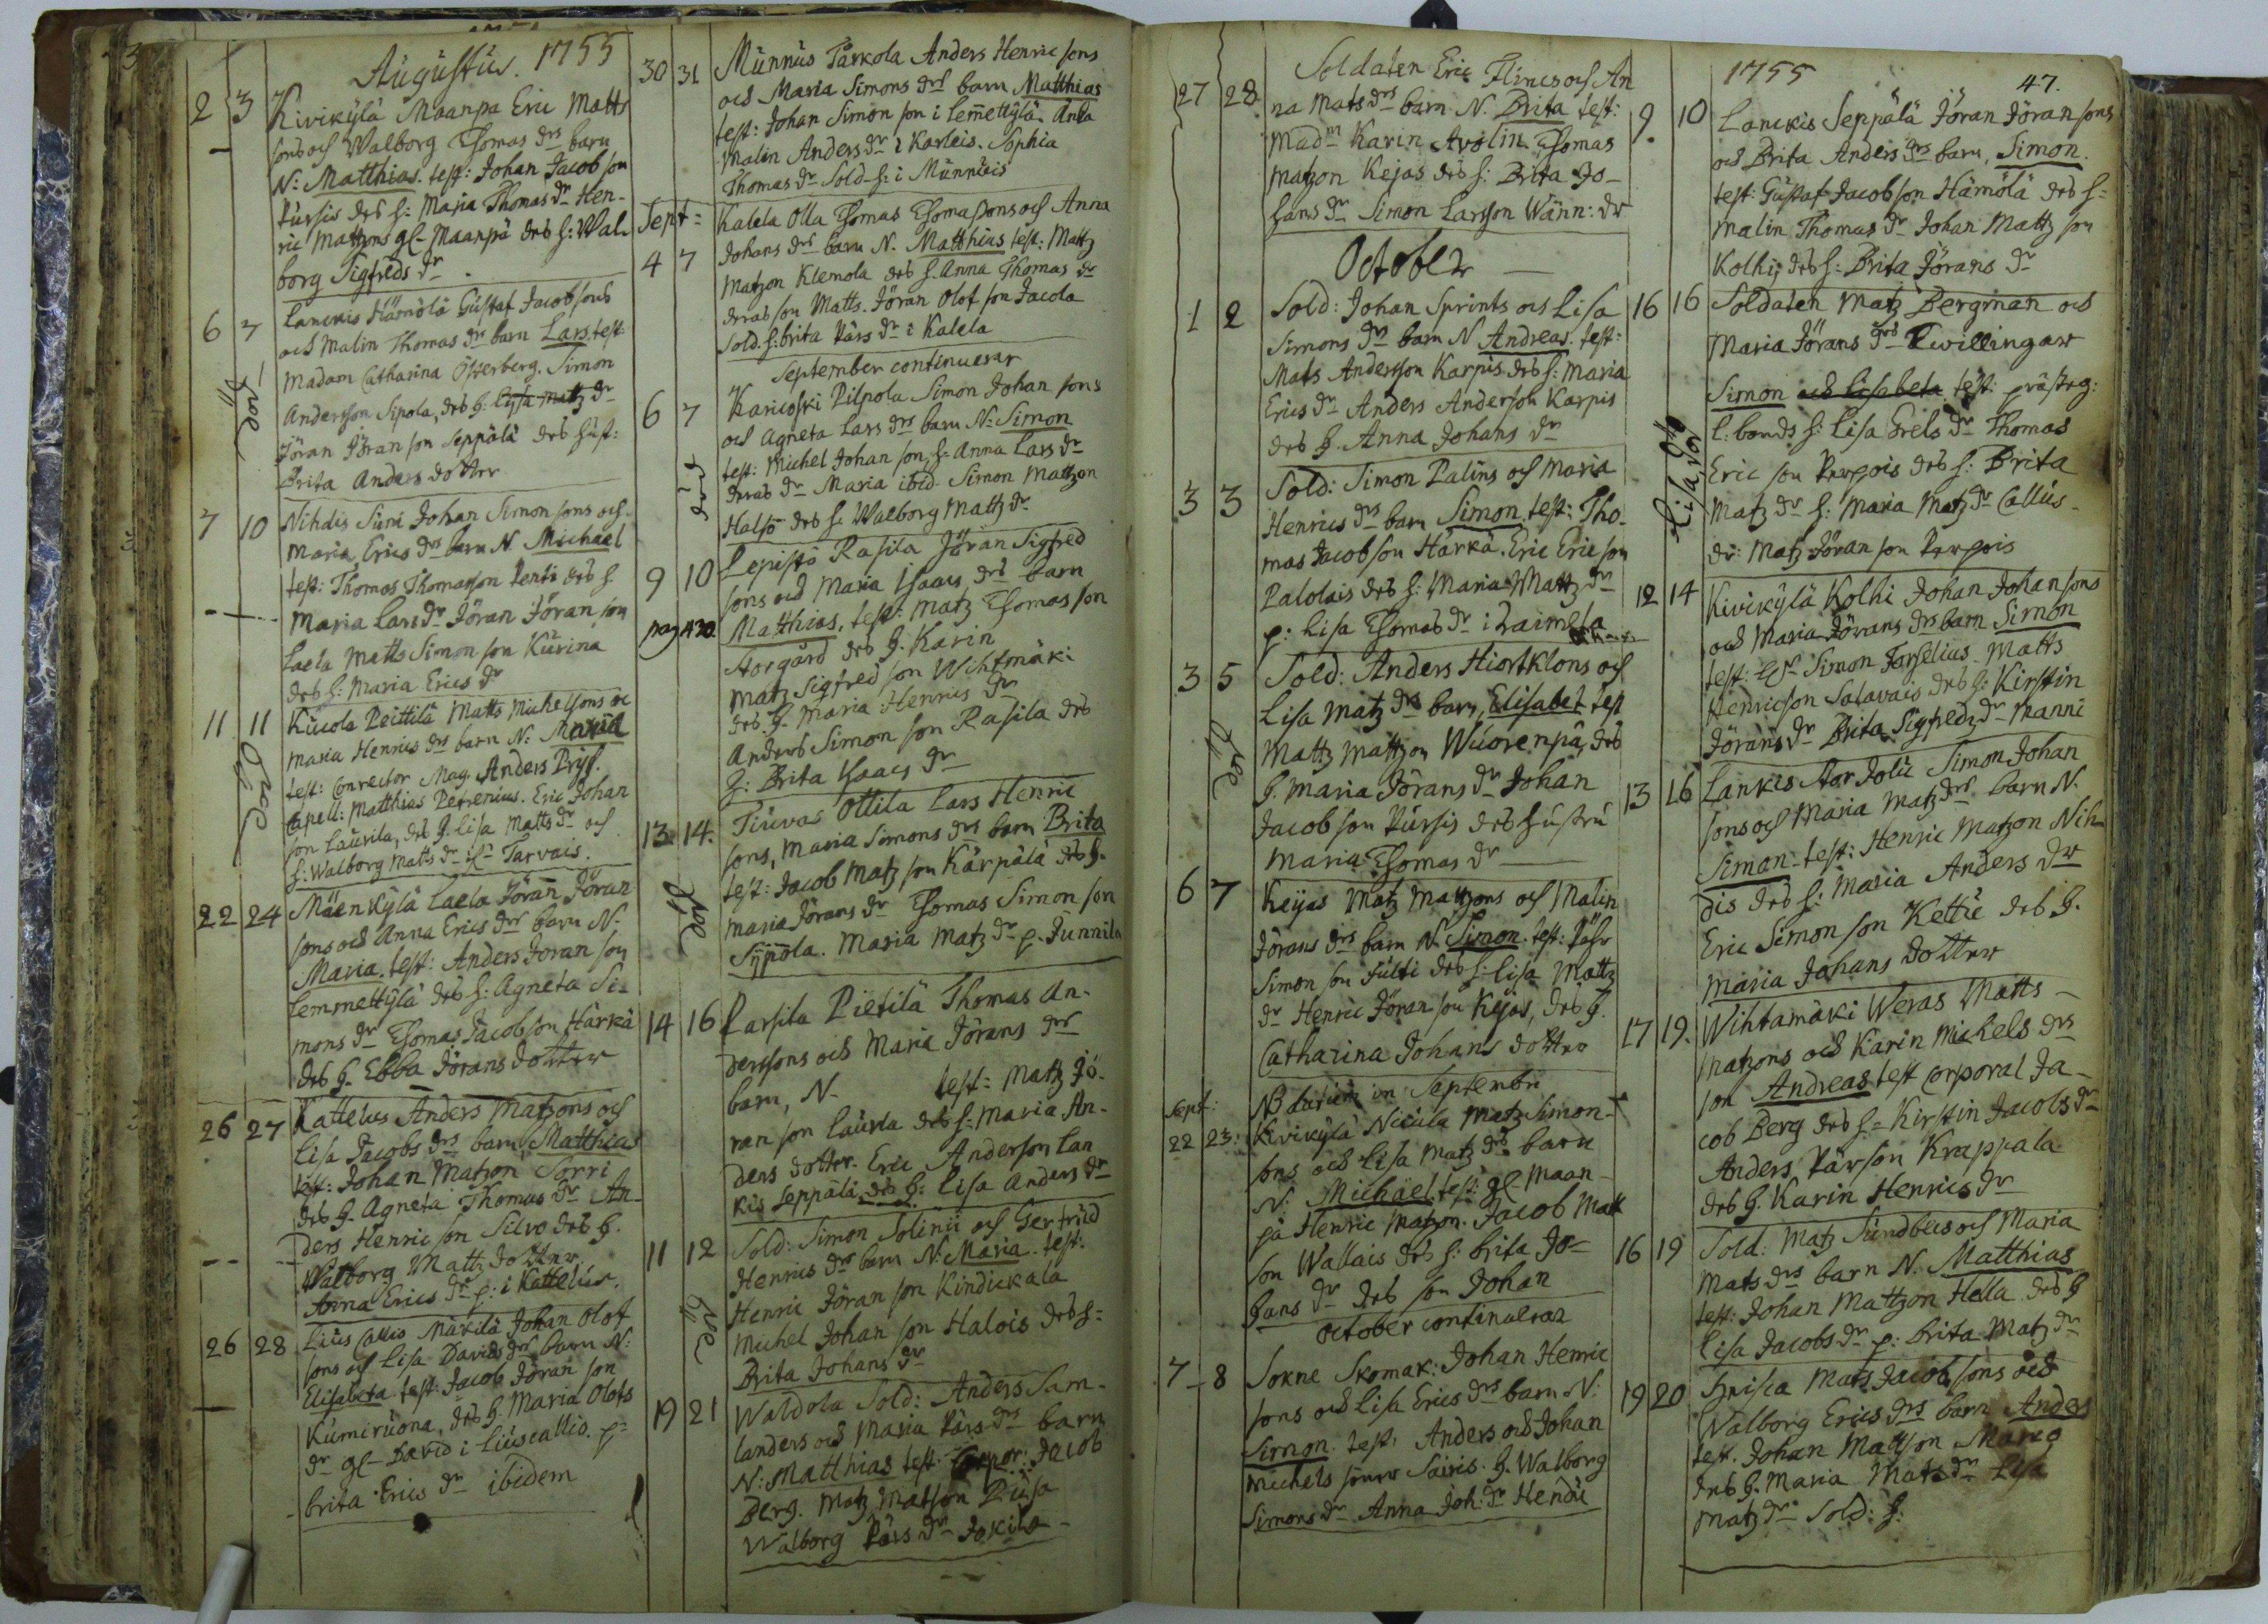 Augustus. 1755
2 3 Kivikylä Maanpa Eric Matts
sons och Walborg Thomas drs barn
N: Matthias. test: Johan Jacob son
Pursis des h: Maria Thomas dr Hen-
ric Mattzons gl- Maanpä des h: Wal-
borg Sigfreds dr
6 7 Lanckis Hämölä Gustaf Jacobsons
och Malin Thomas drs barn Lars test:
Madam Catharina Österberg. Simon
Andersson Sipola, des h: Lisa Matz dr
Jöran Jöran son Seppälä des hust:
Brita Anders dotter
7 10 Nihdis Juni Johan Simon sons och
Maria Erics drs barn N. Michael
test: Thomas Thomasson Penti des h.
Maria Lars dr Jöran Jöran son
Laela Matts Simon son Kurina
des h: Maria Erics dr
11 11 Kucola Peittilä Matts Michelsons oc
Maria Henrics drs barn N: Maria
test: Conrector Mag. Anders Pryss.
Capell: Matthias Petrenius. Eric Johan
son Laurila, des h. Lisa Matts dr och
h: Walborg Matts dr Tarvais.
22 24 Mäenkylä Laela Jöran Jöran
sons och Anna Erics drs barn N:
Maria. test: Anders Jöran son
Lemmettylä des h: Agneta Si-
mons dr Thomas Jacobson Härkä
des h. Ebba Jörans dotter
26 27 Kattelus Anders Matzons och
Lisa Jacobs drs barn, Matthias
test: Johan Matzon Sorri
des h. Agneta Thomas dr An-
ders Henric son Silvo des h.
Walborg Mattz dotter
Anna Erics dr p: i Kattelus.
26 28 Lius Callio Mäkilä Johan Olof
sons och Lisa Davids drs barn N:
Elisabeta. test: Jacob Jöran son
Kumiruona, des h. Maria Olofs
dr gl- David i Liuscallio. p=
brita Erics dr ibidem
30 31 Munnus Tarkola Anders Henric sons
och Maria Simons drs barn Matthias
test: Johan Simon son i Lemettylä
Malin Anders dr i Karleis. Sophia
Thomas dr Sold- h: i Munnuis
Sept:
4 7 Kalela Olla Thomas Thomassons och Anna
Johans drs barn N. Matthias test: Mattz
Matzon Klemola des h. Anna Thomas dr
deras son Matts. Jöran Olof son Jacola
Sold. h: brita Pärs dr i Kalela
September continuerar
6 7 Karicoski Pilpola Simon Johan sons
och Agneta Lars drs barn N: Simon
test: Michel Johan son, h= Anna Lars dr
deras dr Maria ibid. Simon Mattzon
Halso des h: Walborg Mattz dr
9 10 Lepistö Rasila Jöran Sigfred
sons och Maria Isaacs drs barn
pag 430. Matthias, test: Matz Thomas son
Storgård des h. Karin
Matz Sigfred son Wihtmäki
des h. Maria Henrics dr
Anders Simon son Rasila des
h: Brita Isaacs dr
13 14. Tiuvas Ottila Lars Henric
sons, Maria Simons drs barn Brita
test: Jacob Matz son Kärpälä des h.
Maria Jörans dr Thomas Simon son
Syppola. Maria Matz dr p. Junnila
14 16 Parsila Pietilä Thomas An-
derssons och Maria Jörans drs
barn, N. test: Matz Jö-
ran son Laurla des h: Maria An-
ders dotter. Eric Anderson Lan
kis Seppälä des h: Lisa Anders dr
11 12 Sold: Simon Solinii och Gertrud
Henrics drs barn N: Maria. test:
Henric Jöran son Kindickala
Michel Johan son Halois des h=
Brita Johans dr
19 21 Waldola Sold: Anders Sam-
landers och Maria Pärs drs barn
N: Matthias test: Corpor: Jacob
Berg. Matz Matson Piisa
Walborg Pärs dr Jokila
27 28 Soldaten Eric Flincs och An
na Mats drs barn N. Brita test:
Madm Karin Avolin Thomas
Matzon Kejas des h: Brita Jo-
hans dr Simon Larsson Wänn: dr
October
1 2 Sold: Johan Sprints och Lisa
Simons drs barn N Andreas. test:
Mats Andersson Karpis des h: Maria
Erics dr Anders Anderson Karpis
des h. Anna Johans dr
3 3 Sold: Simon Palins och Maria
Henrics drs barn Simon test: Tho-
mas Jacobson Härkä. Eric Ericson
Palolais des h: Maria Mattz dr
p: Lisa Thomas dr i Raimela
3 5 Sold: Anders Hiortklons och
Lisa Matz drs barn, Elisabet test
Mattz Mattzon Wuorenpä, des
h. Maria Jörans dr Johan
Jacob son Pursis des hustru
Maria Thomas dr
6 7 Keijas Matz Mattzons och Malin
Jörans drs barn N. Simon. test: Pähr
Simon son Julti des h: Lisa Mattz
dr Henric Jöran son Keijas, des h.
Catharina Johans dotter
Sept: NB datum in Septembri
22 23: Kivikylä Nicula Matz Simon-
sons och Lisa Matz drs barn
N: Michael test: gl Maan-
pä Henric Matzon. Jacob Matt
son Wallais des h: brita Jo=
hans dr des son Johan
October continuerar
7 8 Sokne Skomak: Johan Henric
sons och Lisa Erics drs barn N:
Simon. test. Anders och Johan
Michels söner Sairis. h. Walborg
Simons dr Anna Joh: dr Hendu
1755 47.
9. 10 Lanckis Seppälä Jöran Jöran sons
och Brita Anders drs barn, Simon.
test: Gustaf Jacobson Hämölä des h=
Malin Thomas dr Johan Mattz son
Kolhi, des h: Brita Jörans dr
16 16 Soldaten Matz Bergman och
Maria Jörans drs Twillingar
Simon och Lisabeta test: prästeg:
l: bonds h: Lisa Grels dr Thomas
Eric son Perpois des h: Brita
Matz dr h: Maria Matz dr Callus-
dr: Matz Jöran son Perpois
12 14 Kivikylä Kolhi Johan Johan sons
och Maria Jörans drs barn Simon
test: Simon Forselius. Matts
Henricson Salavais des h: Kirstin
Jörans dr Brita Sigfreds dr Manni
13 16 Lankis Stor Jolu Simon Johan
sons och Maria Matz drs barn N.
Simon. test: Henric Matzon Nih-
dis des h: Maria Anders dr
Eric Simon son Kettu des h.
Maria Johans dotter
17 19. Wihtamäki Weras Matts
Matzons och Karin Michels drs
son Andreas test Corporal Ja-
cob Berg des h= Kirstin Jacobs dr
Anders Pärson Krappala
des h. Karin Henrics dr
16 19 Sold: Matz Sundbers och Maria
Mats drs barn N. Matthias
test: Johan Mattzon Hella des h
Lisa Jacobs dr p: brita Matz dr
19 20 Spisca Mats Jacob sons och
Walborg Erics drs barn Anders
test. Johan Mattson Marco
des h. Maria Mats dr Lisa
Matz dr Sold: h: